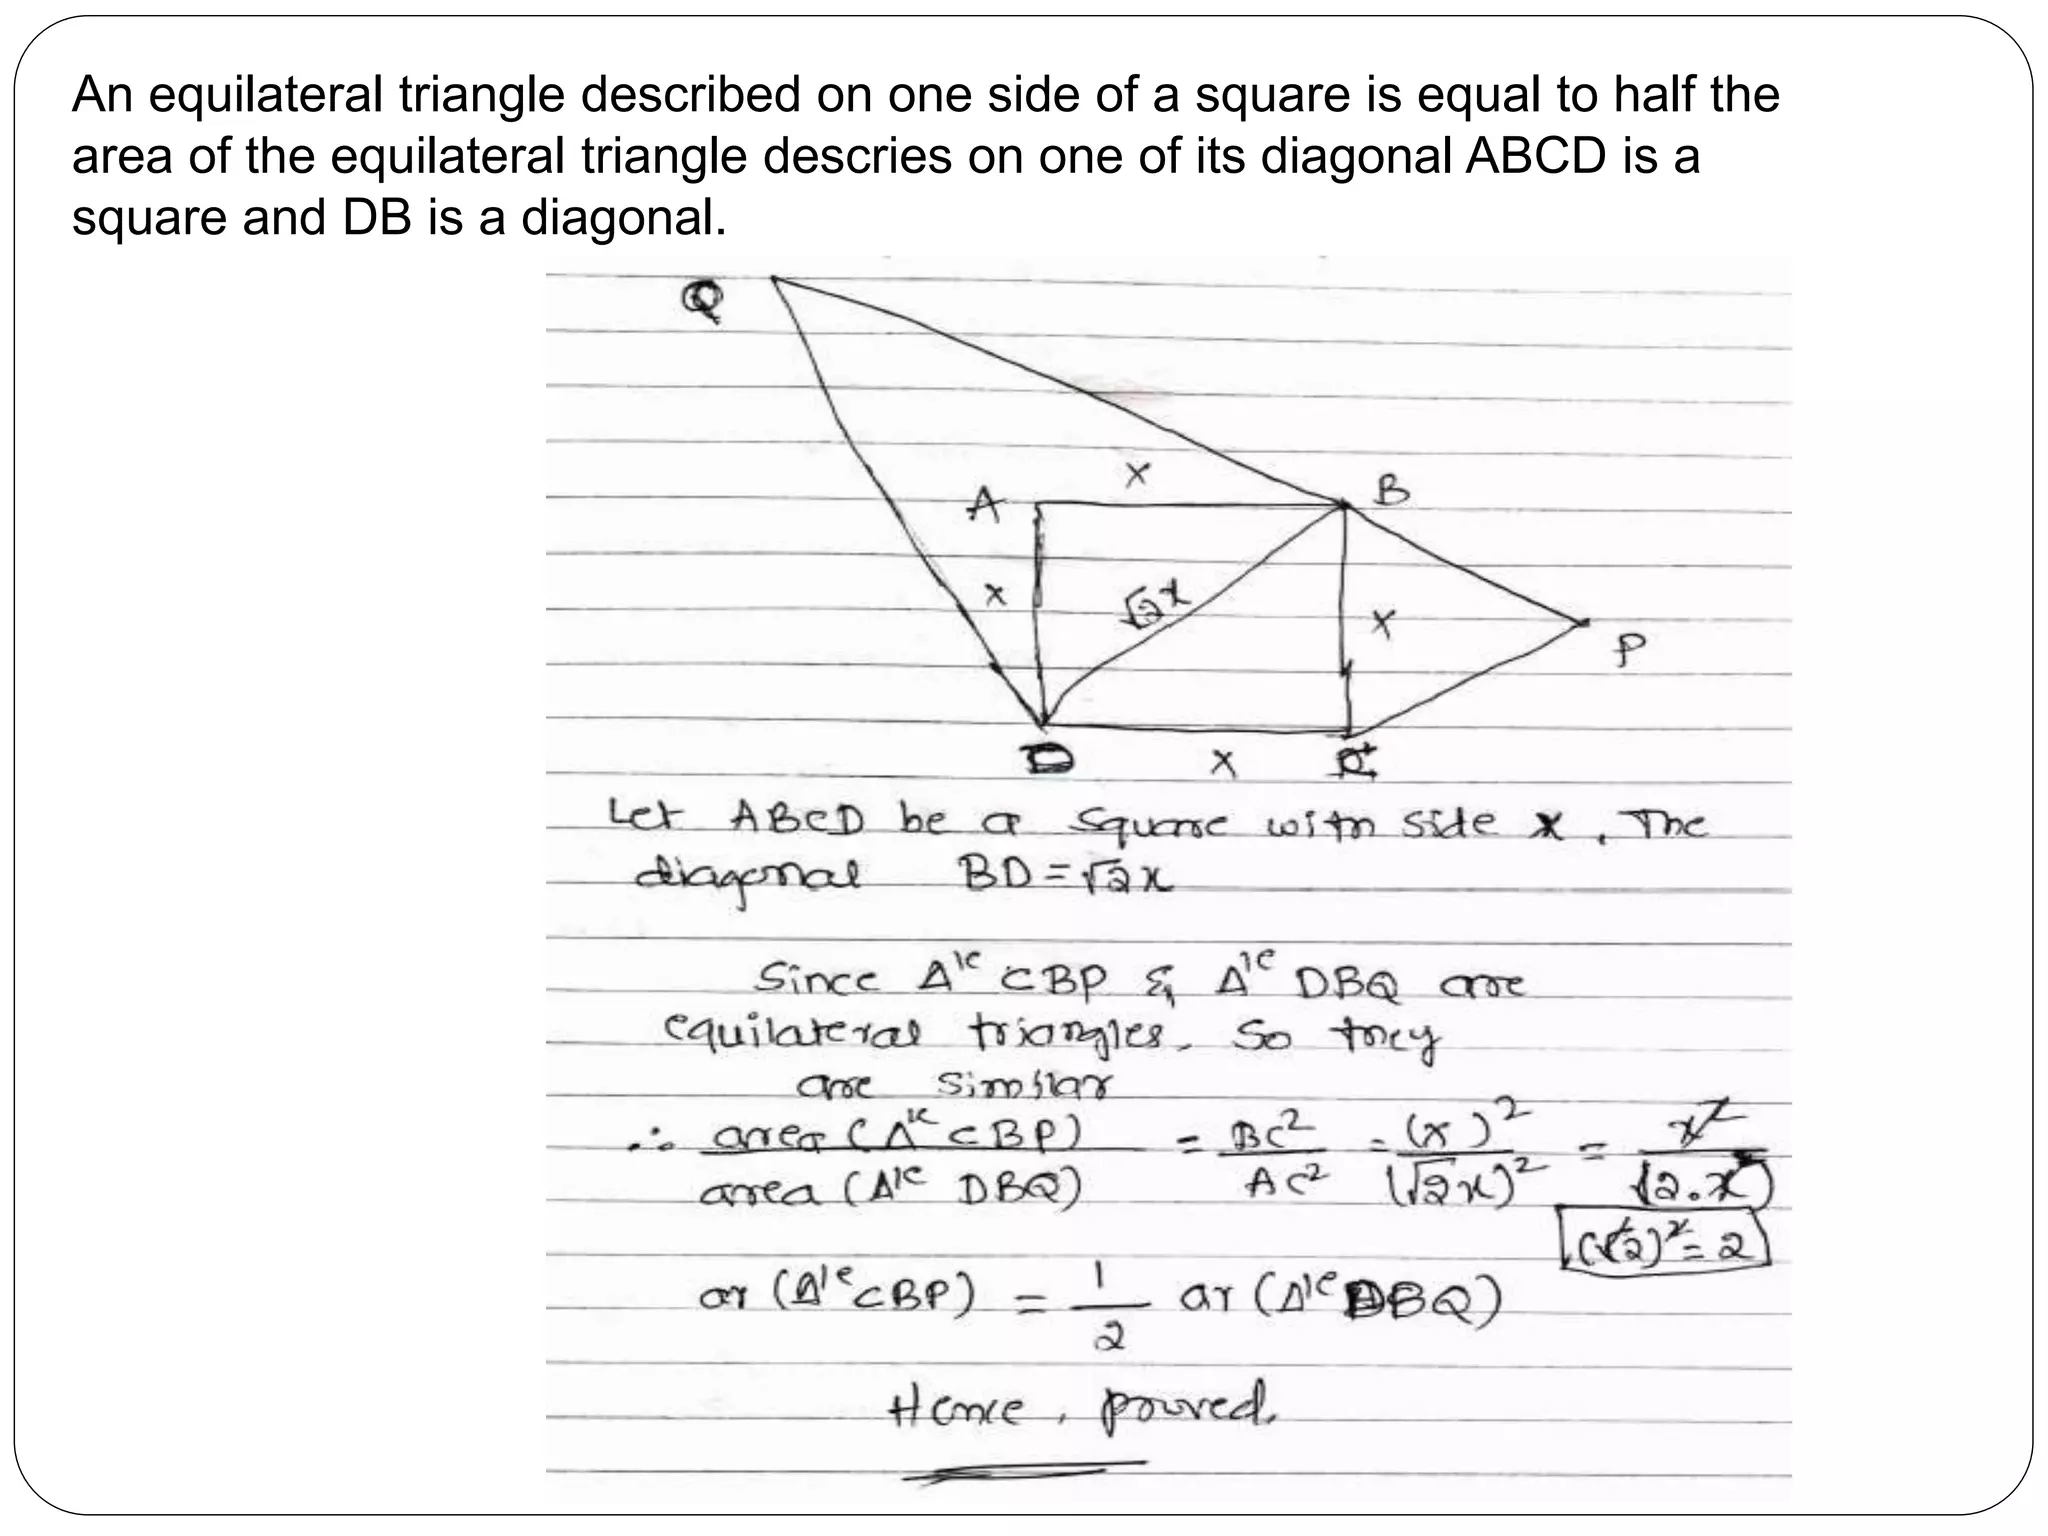 An equilateral triangle described on one side of a square is equal to half the
area of the equilateral triangle descries on one of its diagonal ABCD is a
square and DB is a diagonal.
Q
x
A
B
x
√2x
x
P
D
x
C
Let ABCD be a square with side x. The
diagonal BD = √2x
Since Δle CBP & Δle DBQ are
equilateral triangles. So they
are similar
∴ area (Δle CBP) / area (Δle DBQ) = BC² / AC² = (x)² / (√2x)² = x² / (2.x²)
(√2)² = 2
ar (Δle CBP) = 1/2 ar (Δle DBQ)
Hence, proved.